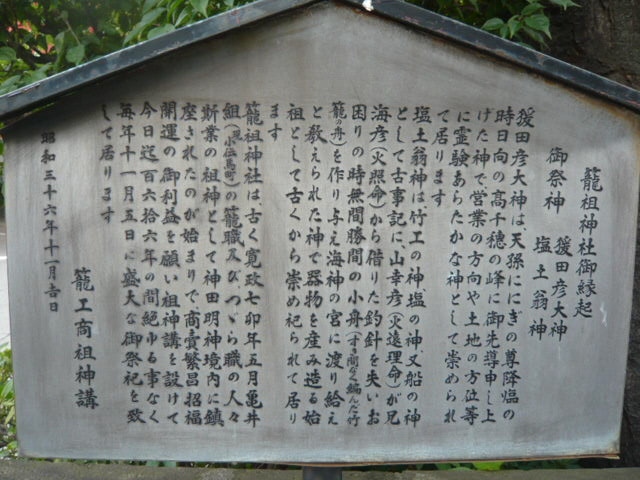 籠祖神社御縁起
御祭神　猨田彦大神
　　　　塩土翁神
猨田彦大神は、天孫ににぎの尊降臨の
時日向の高千穂の峰に御先導申し上
げた神で営業の方向や土地の方位等
に霊験あらたかな神として崇められ
て居ります
塩土翁神は竹工の神、塩の神、又船の神
として古事記に、山幸彦(火遠理命)が兄
海彦(火照命)から借りた釣針を失いお
困りの時無間勝間の小舟(すき間なく編んだ竹
籠の舟)を作り与え海神の宮に渡り給え
と教えられた神で器物を産み造る始
祖として古くから崇め祀られて居り
ます
籠祖神社は、古く寛政七卯年五月亀井
組(現小伝馬町)の籠職及びつゞら職の人々
斯業の祖神として神田明神境内に鎮
座されたのが始まりで商売繁昌招福
開運の御利益を願い祖神講を設けて
今日迄百六拾六年の間絶ゆる事なく
毎年十一月五日に盛大な御祭祀を致
して居ります
昭和三十六年十一月吉日
籠工商祖神講